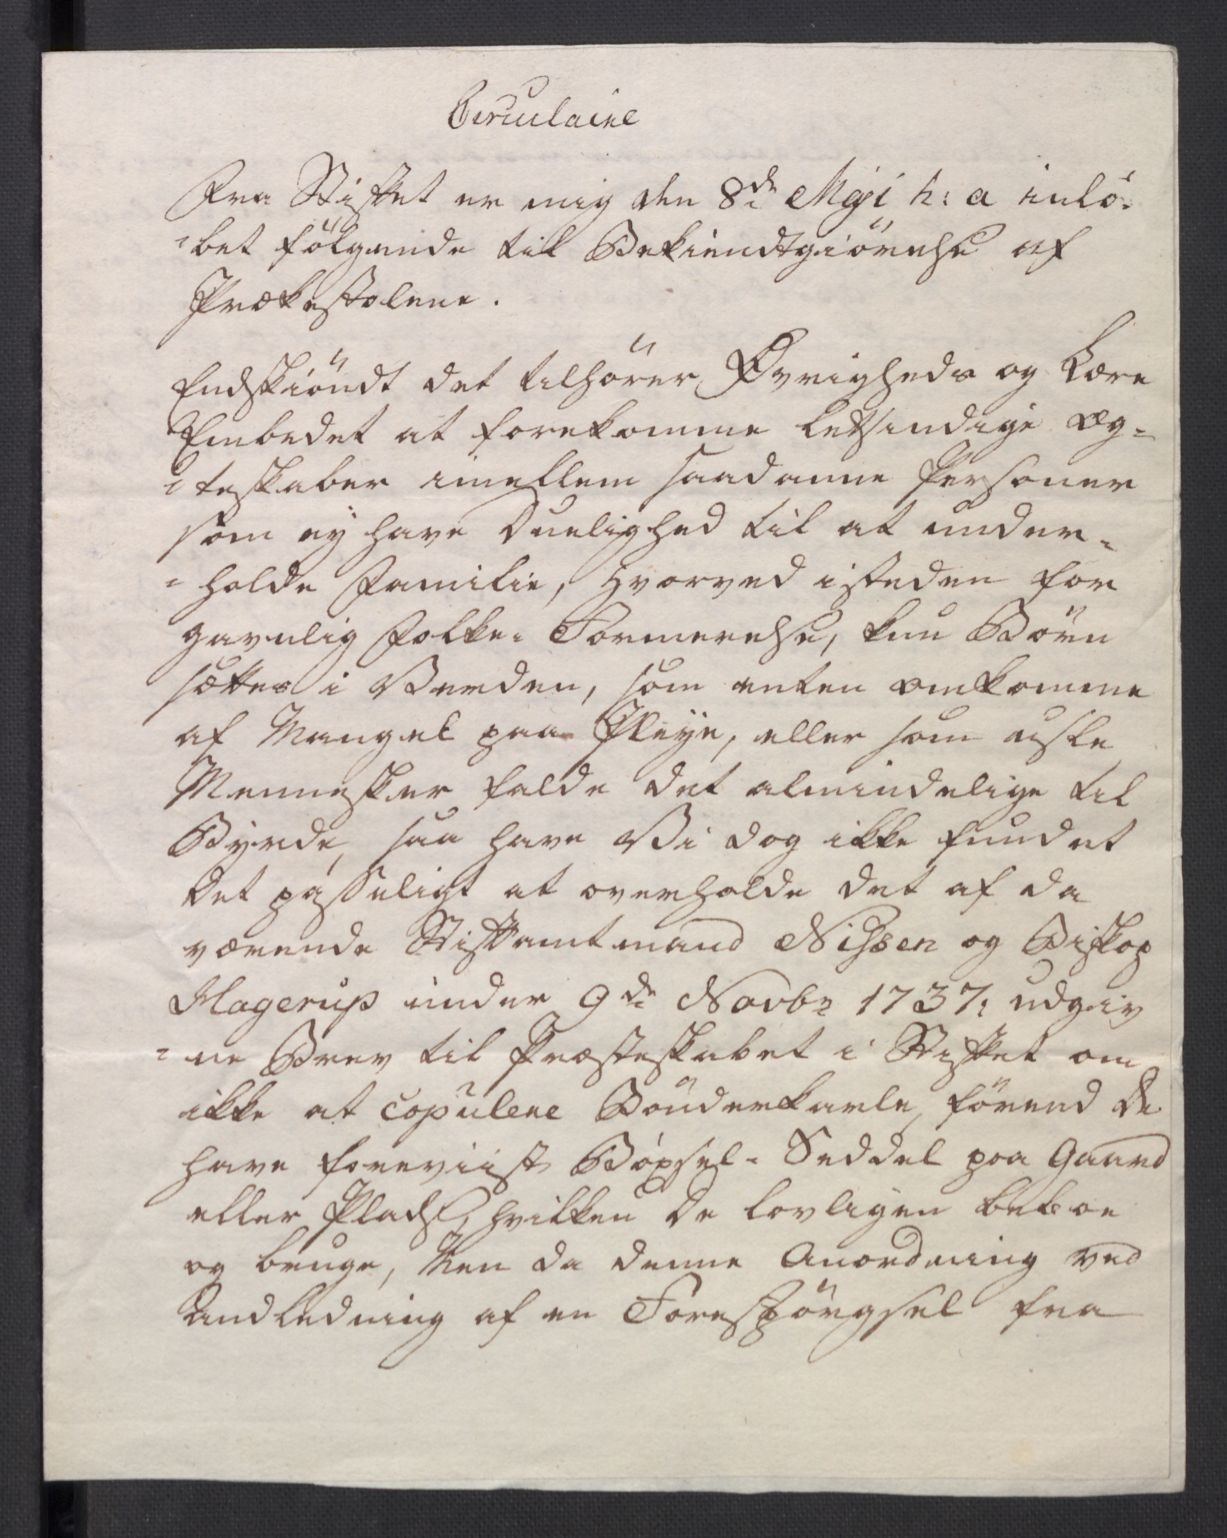 Circulaire
Fra Stiftet er mig den 8de Maji h: a indlö-
-bet fölgende til Bekiendtgiörelse af
Prækestolene.
Endskiöndt det tilhörer Øvrigheds og Lære
Embedet at forekomme letsindige Æg-
-teskaber imellem saadanne Personer
som ey have Duelighed til at under-
-holde Familie, hvorved isteden for
gavnlig Folke-Formerelse, kun Börn
sættes i Verden, som enten omkomme
af Mangel paa Pleye, eller som usle
Mennesker falde det almindelige til
Byrde, saa have Vi dog ikke fundet
det passeligt at overholde det af da
værende Stiftamtmand Nissen og Biskop
Hagerup under 9de Novbr 1737: udgiv
-ne Brev til Præsteskabet i Stiftet om
ikke at copulere Bönderkarle, förend de
have foreviist Böxsel-Seddel paa Gaard
eller Plads, hvilken de lovligen beboe
og bruge, Men da denne Anordning ved
Andledning af en Forespörgsel fra